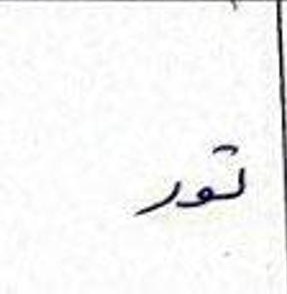 تور